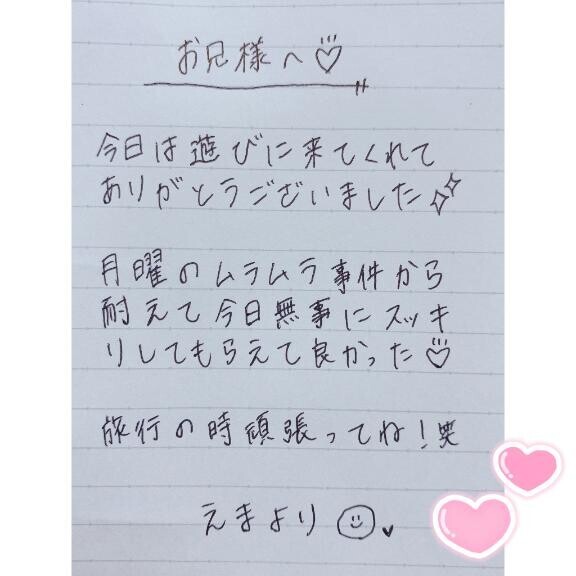 お兄様へ♡
今日は遊びに来てくれて
ありがとうございました
月曜のムラムラ事件から
耐えて今日無事にスッキ
リしてもらえて良かった♡
旅行の時頑張ってね!笑
えまより